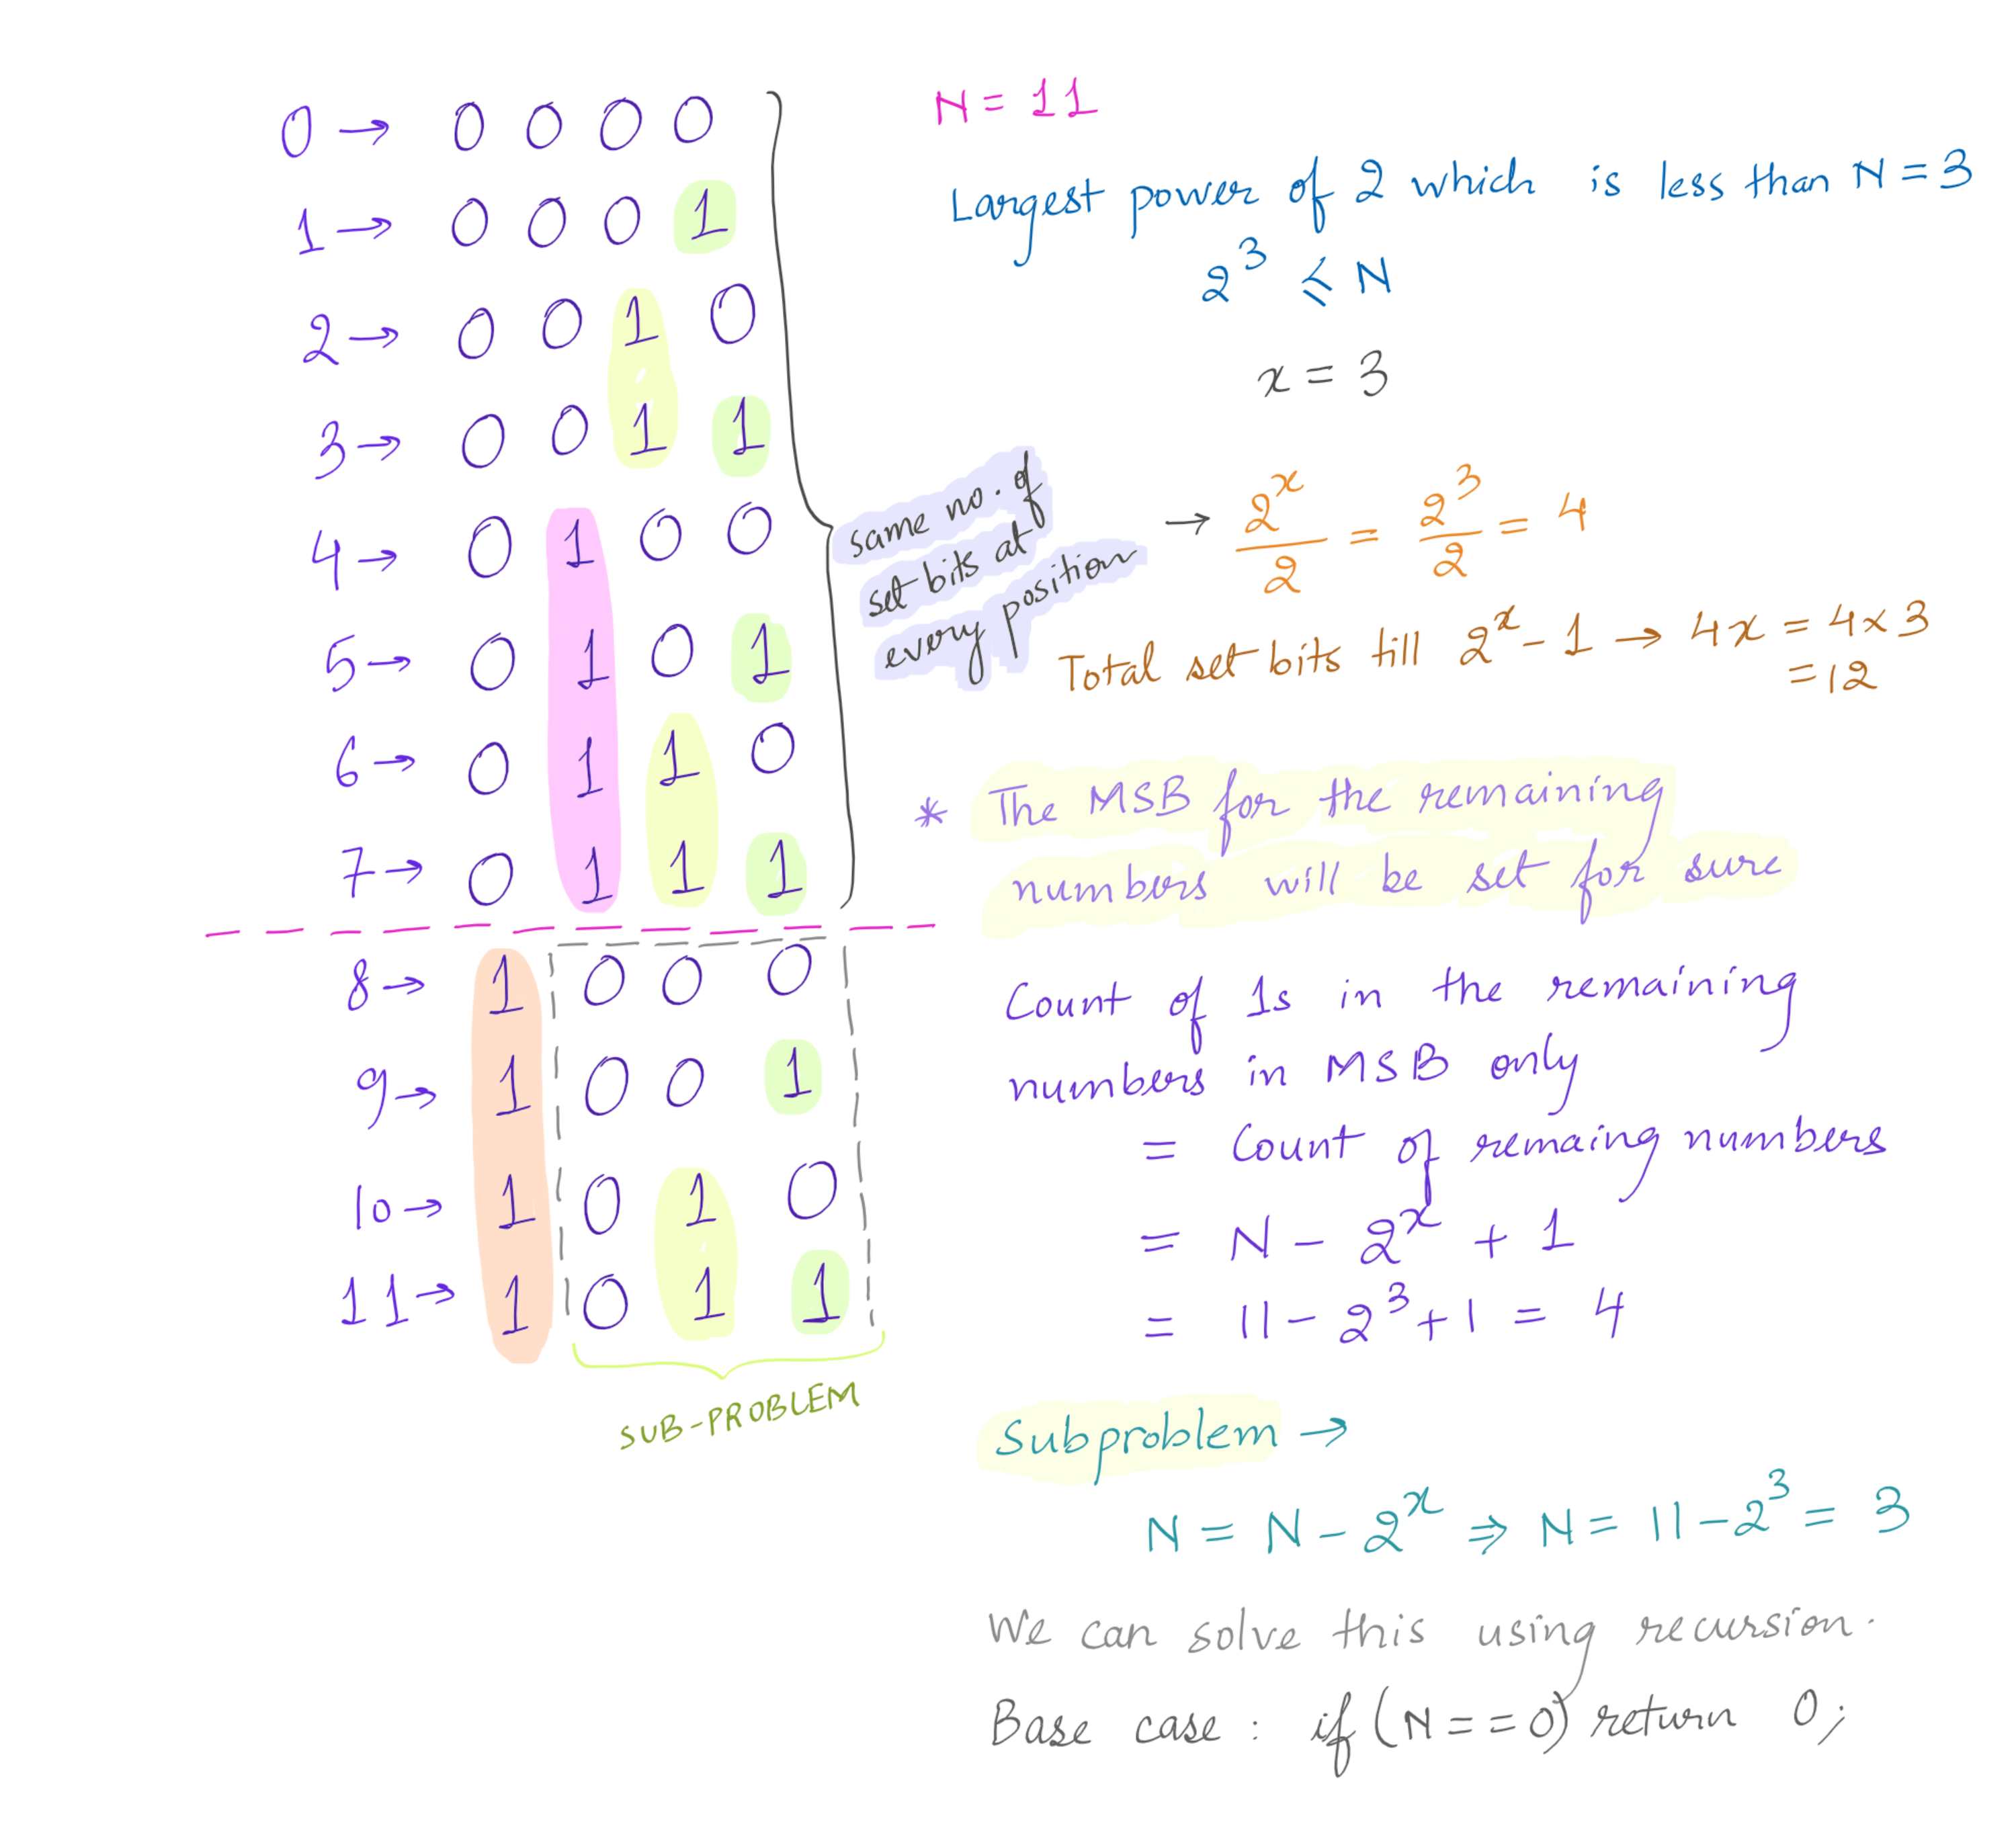 0 → 0 0 0 0
1 → 0 0 0 1
2 → 0 0 1 0
3 → 0 0 1 1
4 → 0 1 0 0
5 → 0 1 0 1
6 → 0 1 1 0
7 → 0 1 1 1
8 → 1 0 0 0
9 → 1 0 0 1
10 → 1 0 1 0
11 → 1 0 1 1
SUB-PROBLEM
same no. of
set bits at
every position
N = 11
Largest power of 2 which is less than N = 3
2^3 ≤ N
x = 3
→ 2^x/2 = 2^3/2 = 4
Total set bits till 2^x - 1 → 4x = 4x3
= 12
* The MSB for the remaining
numbers will be set for sure
Count of 1s in the remaining
numbers in MSB only
= Count of remaing numbers
= N - 2^x + 1
= 11 - 2^3 + 1 = 4
Subproblem →
N = N - 2^x ⇒ N = 11 - 2^3 = 3
We can solve this using recursion.
Base case : if (N == 0) return 0;